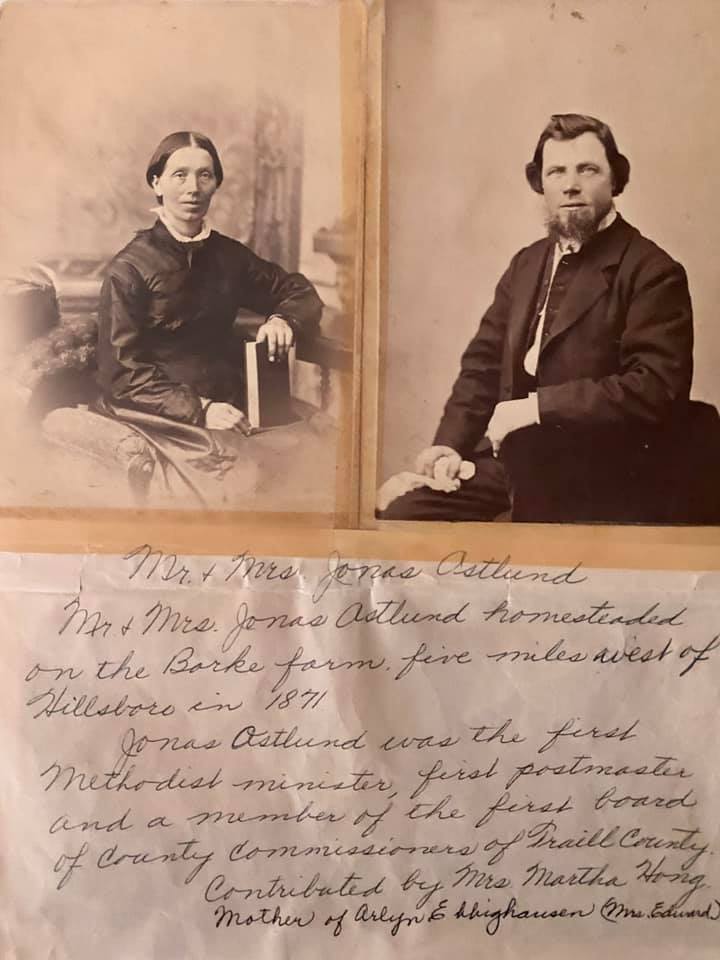 Mr. & Mrs. Jonas Ostlund
Mr & Mrs. Jonas Ostlund homesteaded
on the Borke farm, five miles west of
Hillsboro in 1871
Jonas Ostlund was the first
Methodist minister, first postmaster
and a member of the first board
of County Commissioners of Traill County.
Contributed by Mrs Martha Hong
Mother of Arlyn Ebbighausen (Mrs. Edward)